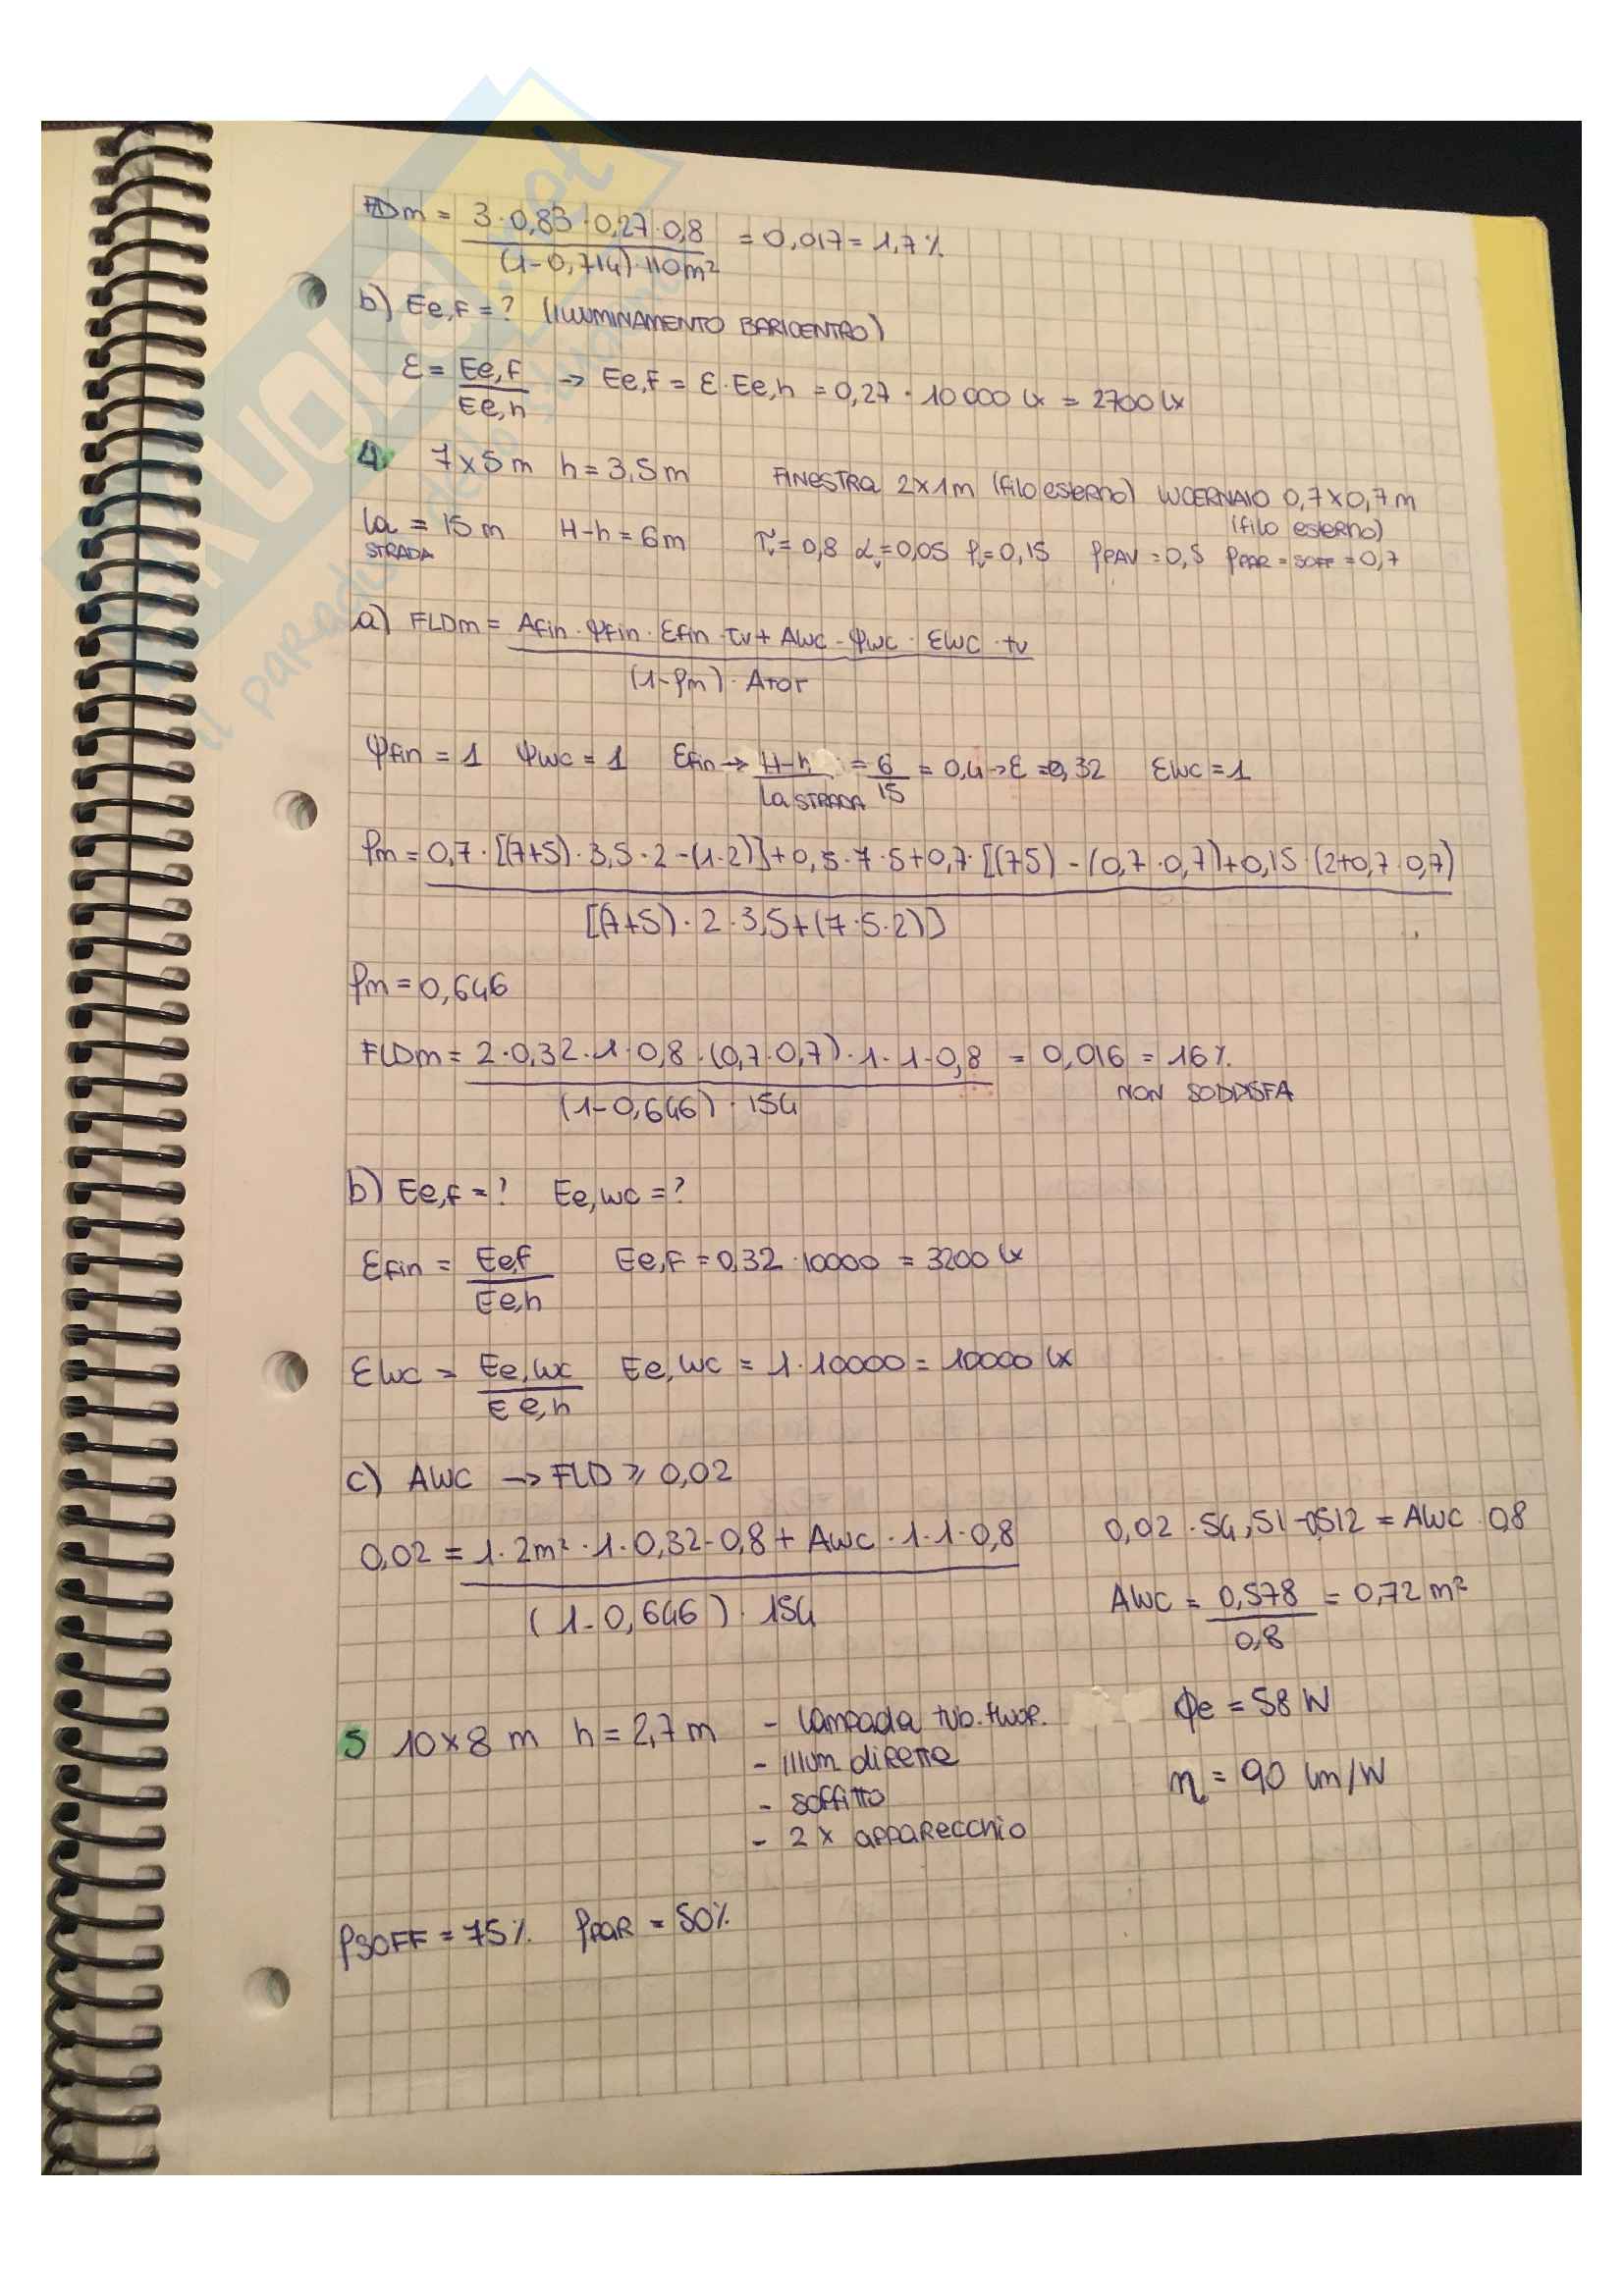 FLDm = 3·0,83·0,27·0,8 / (1-0,714)·110m² = 0,017 = 1,7%
b) Ee,F = ? (ILLUMINAMENTO BARICENTRO)
ε = Ee,F / Ee,h → Ee,F = ε·Ee,h = 0,27 · 10000 lx = 2700 lx
4. 7x5m h = 3,5m FINESTRA 2x1m (filo esterno) LUCERNAIO 0,7x0,7m (filo esterno)
la STRADA = 15m H-h = 6m τv = 0,8 αv = 0,05 ρv = 0,15 ρPAV = 0,5 ρPAR = SOFF = 0,7
a) FLDm = Afin · ψfin · εfin · τv + AWC · ψWC · εWC · τv / (1-ρm) · ATOT
ψfin = 1 ψWC = 1 εfin → H-h / la STRADA = 6 / 15 = 0,4 → ε = 0,32 εWC = 1
ρm = 0,7·[(7+5)·3,5·2-(1·2)]+0,5·7·5+0,7·[(7·5)-(0,7·0,7)+0,15·(2+0,7·0,7) / [(7+5)·2·3,5+(7·5·2)]
ρm = 0,646
FLDm = 2·0,32·1·0,8·(0,7·0,7)·1·1·0,8 / (1-0,646)·154 = 0,016 = 16%
NON SODDISFA
b) Ee,F = ? Ee,WC = ?
εfin = Ee,F / Ee,h Ee,F = 0,32 · 10000 = 3200 lx
εWC = Ee,WC / Ee,h Ee,WC = 1·10000 = 10000 lx
c) AWC → FLD ≥ 0,02
0,02 = 1·2m²·1·0,32·0,8 + AWC·1·1·0,8 / (1-0,646)·154 0,02·54,51-0,512 = AWC·0,8
AWC = 0,578 / 0,8 = 0,72 m²
5 10x8 m h = 2,7 m - lampada tub. fluor. Φe = 58 W
- illum. dirette
η = 90 lm/W
- soffitto
- 2 x apparecchio
ρSOFF = 75% ρPAR = 50%